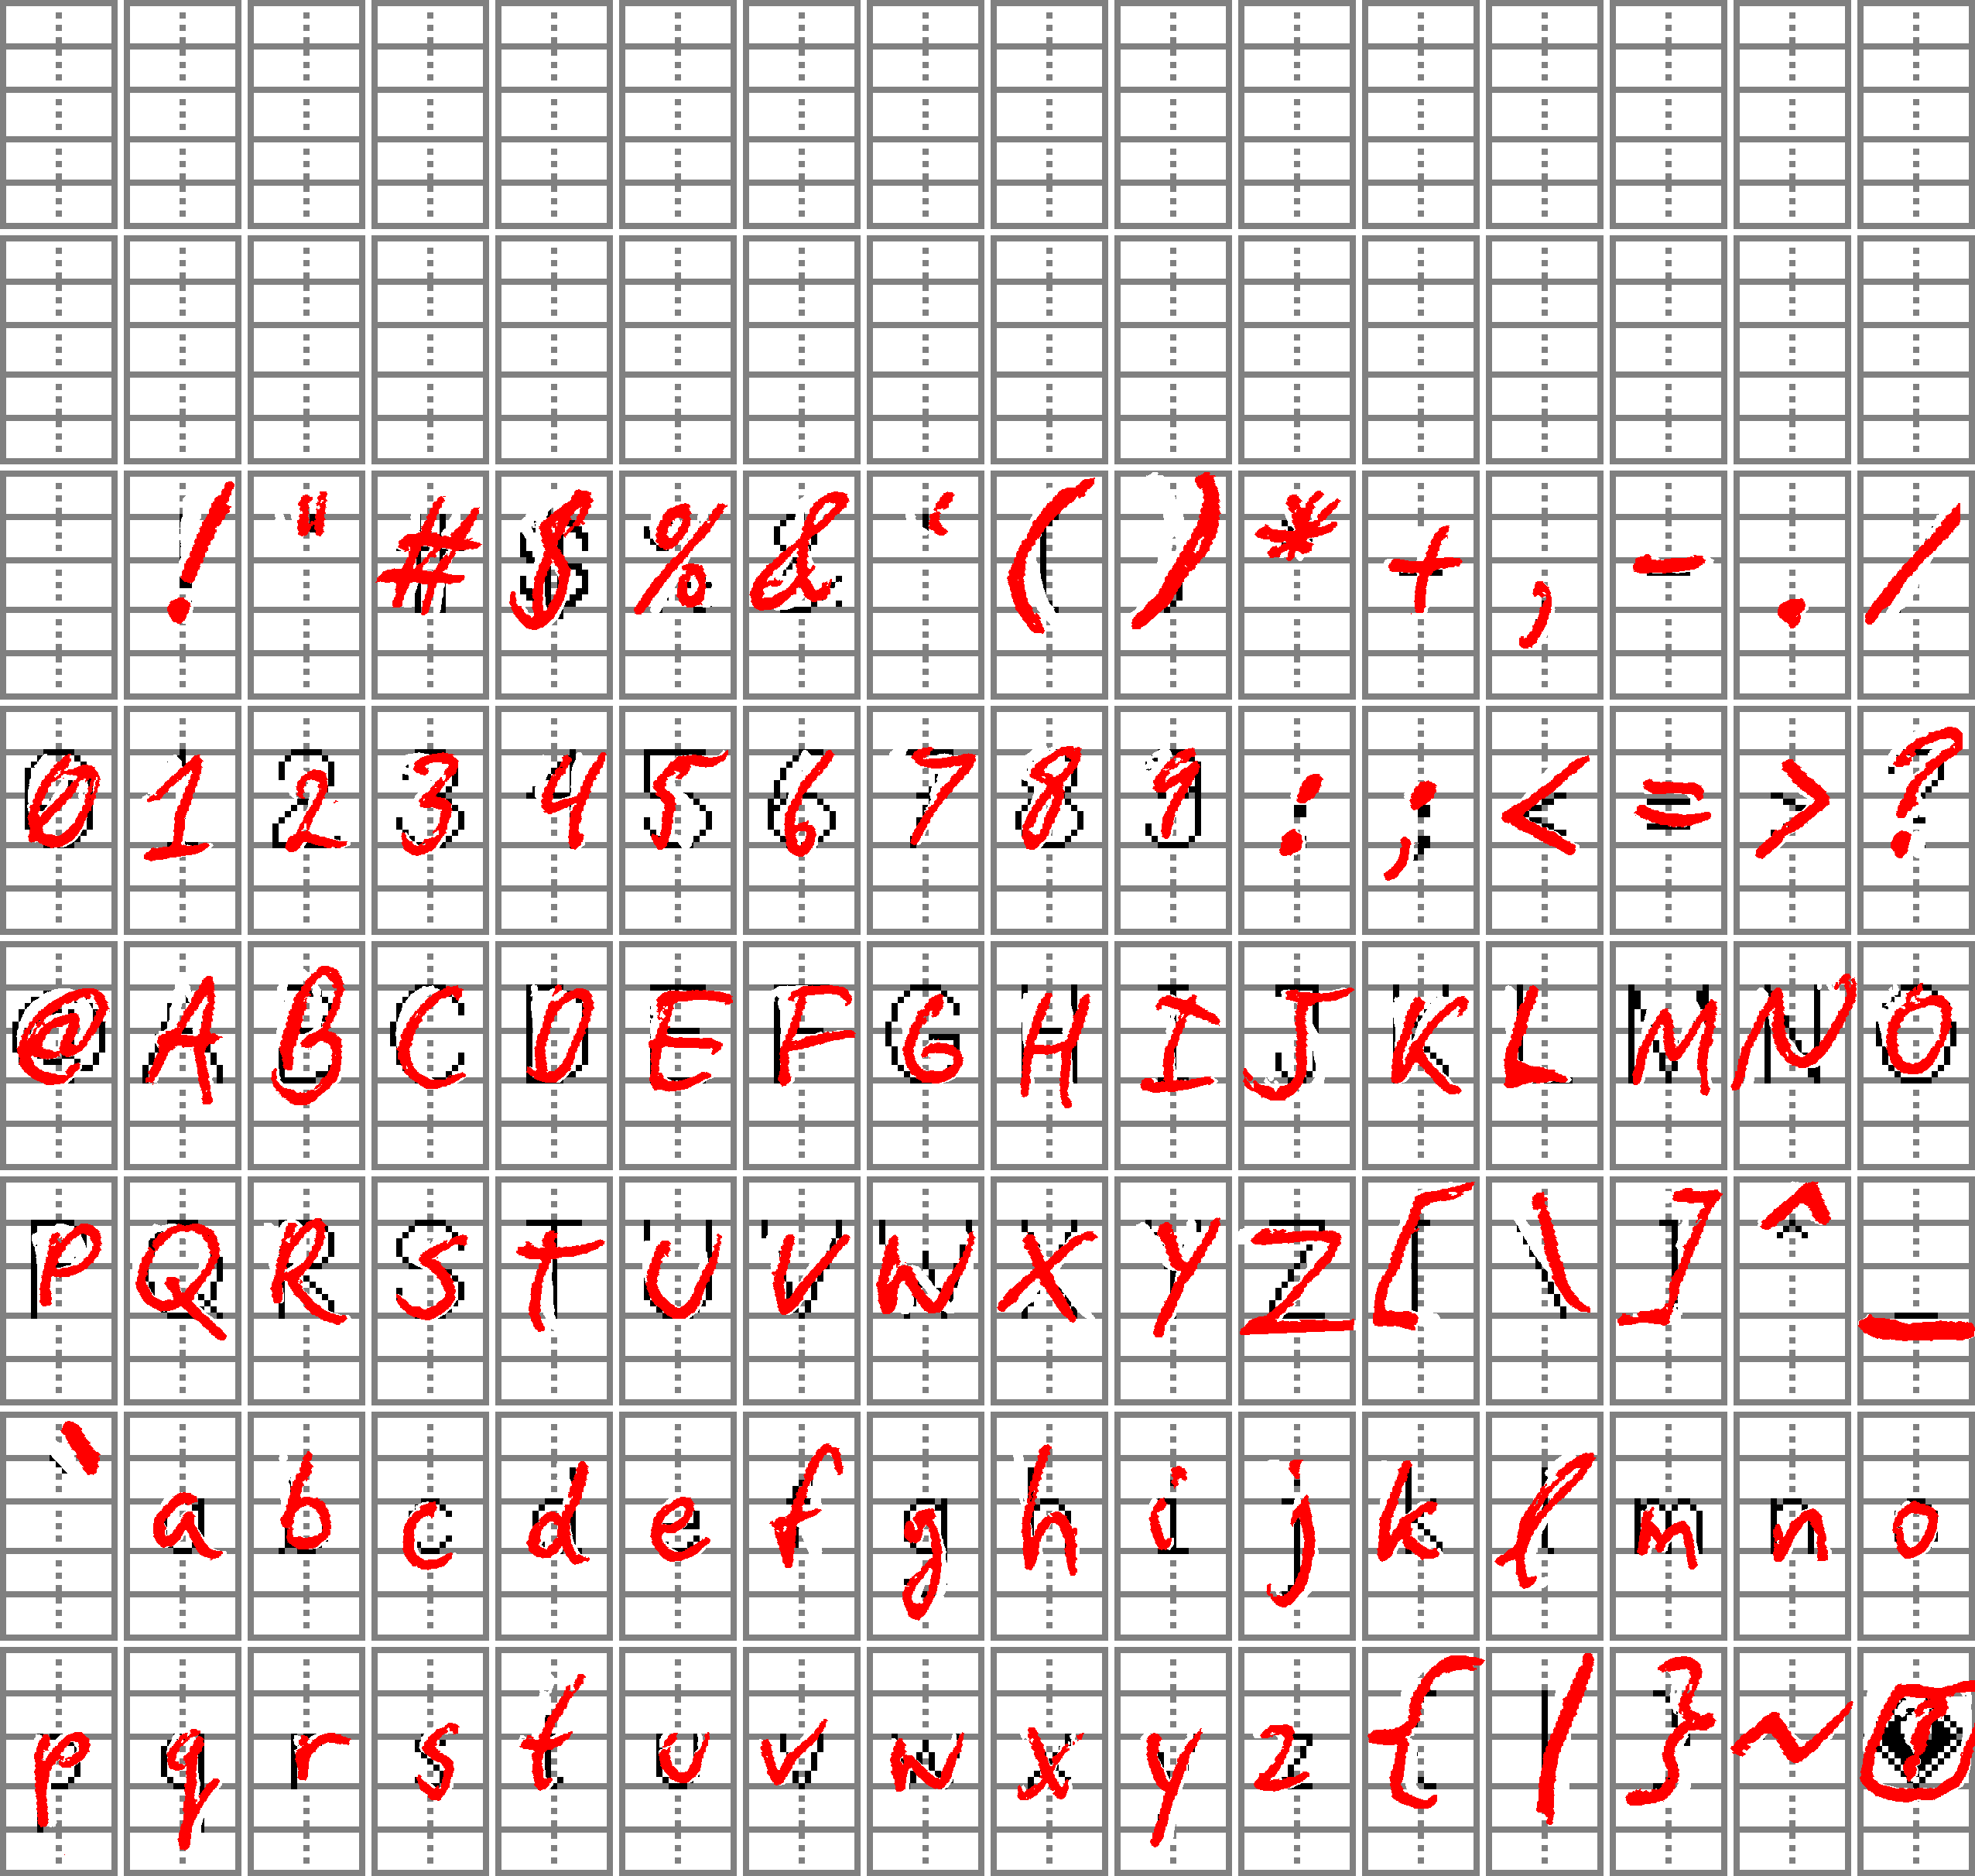 ! " # $ % & ' ( ) * + , - . /
0 1 2 3 4 5 6 7 8 9 : ; < = > ?
@ A B C D E F G H I J K L M N O
P Q R S T U V W X Y Z [ \ ] ^ _
` a b c d e f g h i j k l m n o
p q r s t u v w x y z { | } ~ �